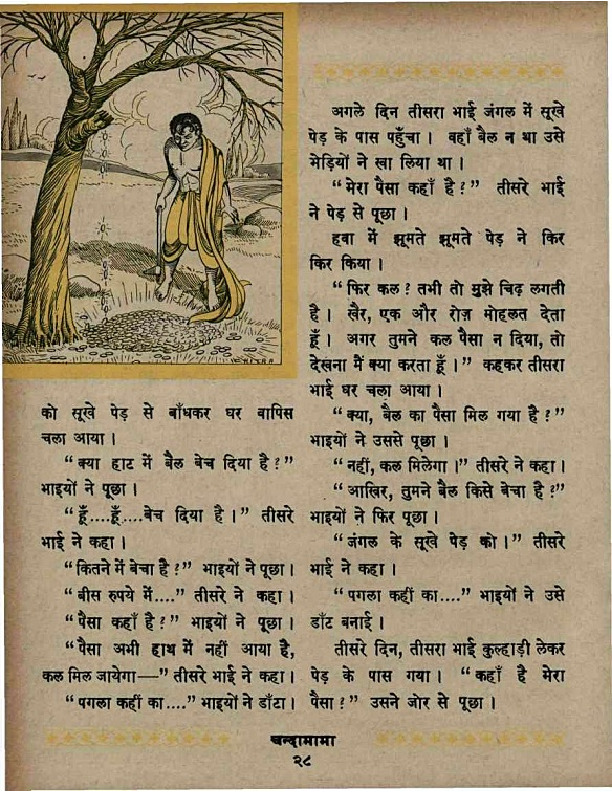 को सूखे पेड़ से बाँधकर घर वापिस
चला आया ।
“क्या हाट में बैल बेच दिया है?”
भाइयों ने पूछा ।
“हूँ....हूँ....बेच दिया है ।” तीसरे
भाई ने कहा ।
“कितने में बेचा है?” भाइयों ने पूछा ।
“बीस रुपये में....” तीसरे ने कहा ।
“पैसा कहाँ है?” भाइयों ने पूछा ।
“पैसा अभी हाथ में नहीं आया है,
कल मिल जायेगा—” तीसरे भाई ने कहा ।
“पगला कहीं का....” भाइयों ने डाँटा ।
अगले दिन तीसरा भाई जंगल में सूखे
पेड़ के पास पहुँचा । वहाँ बैल न था उसे
भेड़ियों ने खा लिया था ।
“मेरा पैसा कहाँ है?” तीसरे भाई
ने पेड़ से पूछा ।
हवा में झूमते झूमते पेड़ ने किर
किर किया ।
“फिर कल? तभी तो मुझे चिढ़ लगती
है । खैर, एक और रोज़ मोहलत देता
हूँ । अगर तुमने कल पैसा न दिया, तो
देखना मैं क्या करता हूँ ।” कहकर तीसरा
भाई घर चला आया ।
“क्या, बैल का पैसा मिल गया है?”
भाइयों ने उससे पूछा ।
“नहीं, कल मिलेगा ।” तीसरे ने कहा ।
“आखिर, तुमने बैल किसे बेचा है?”
भाइयों ने फिर पूछा ।
“जंगल के सूखे पेड़ को ।” तीसरे
भाई ने कहा ।
“पगला कहीं का....” भाइयों ने उसे
डाँट बनाई ।
तीसरे दिन, तीसरा भाई कुल्हाड़ी लेकर
पेड़ के पास गया । “कहाँ है मेरा
पैसा?” उसने जोर से पूछा ।
चन्दामामा
२८